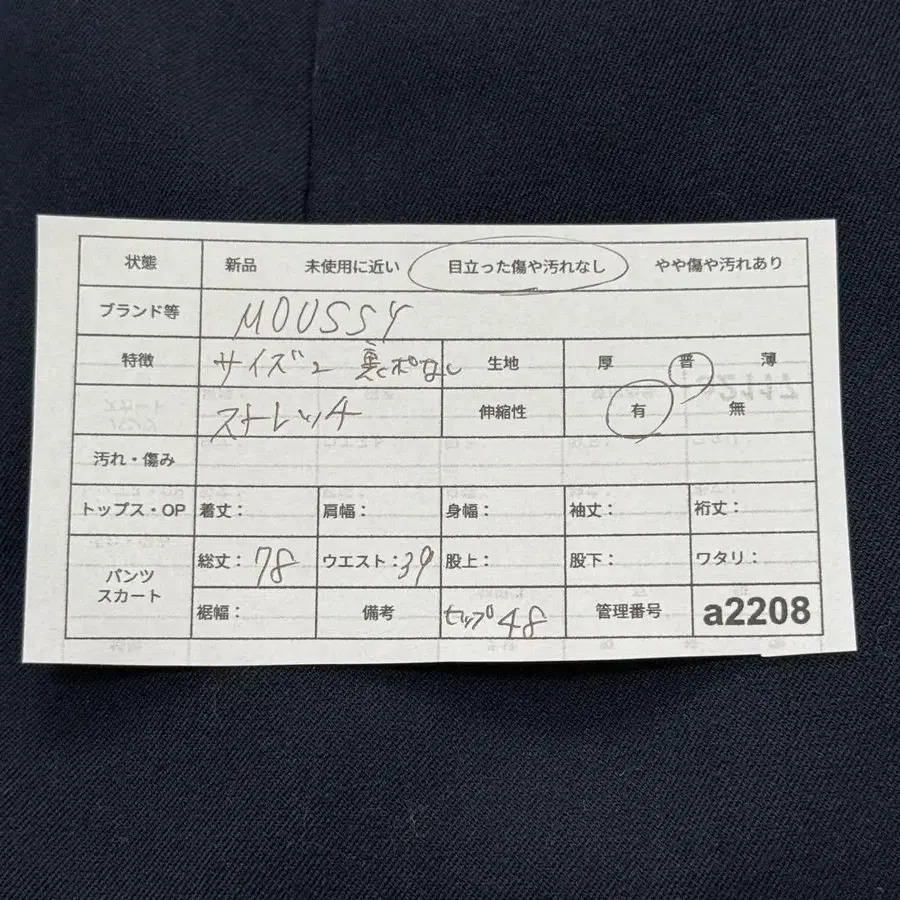 状態 新品 未使用に近い 目立った傷や汚れなし やや傷や汚れあり
ブランド等 MOUSSY
特徴 サイズ2 裏ポなし 生地 厚 普 薄
ストレッチ 伸縮性 有 無
汚れ・傷み
トップス・OP 着丈: 肩幅: 身幅: 袖丈: 裄丈:
パンツ スカート 総丈: 78 ウエスト: 39 股上: 股下: ワタリ:
裾幅: 備考 ヒップ 48 管理番号 a2208